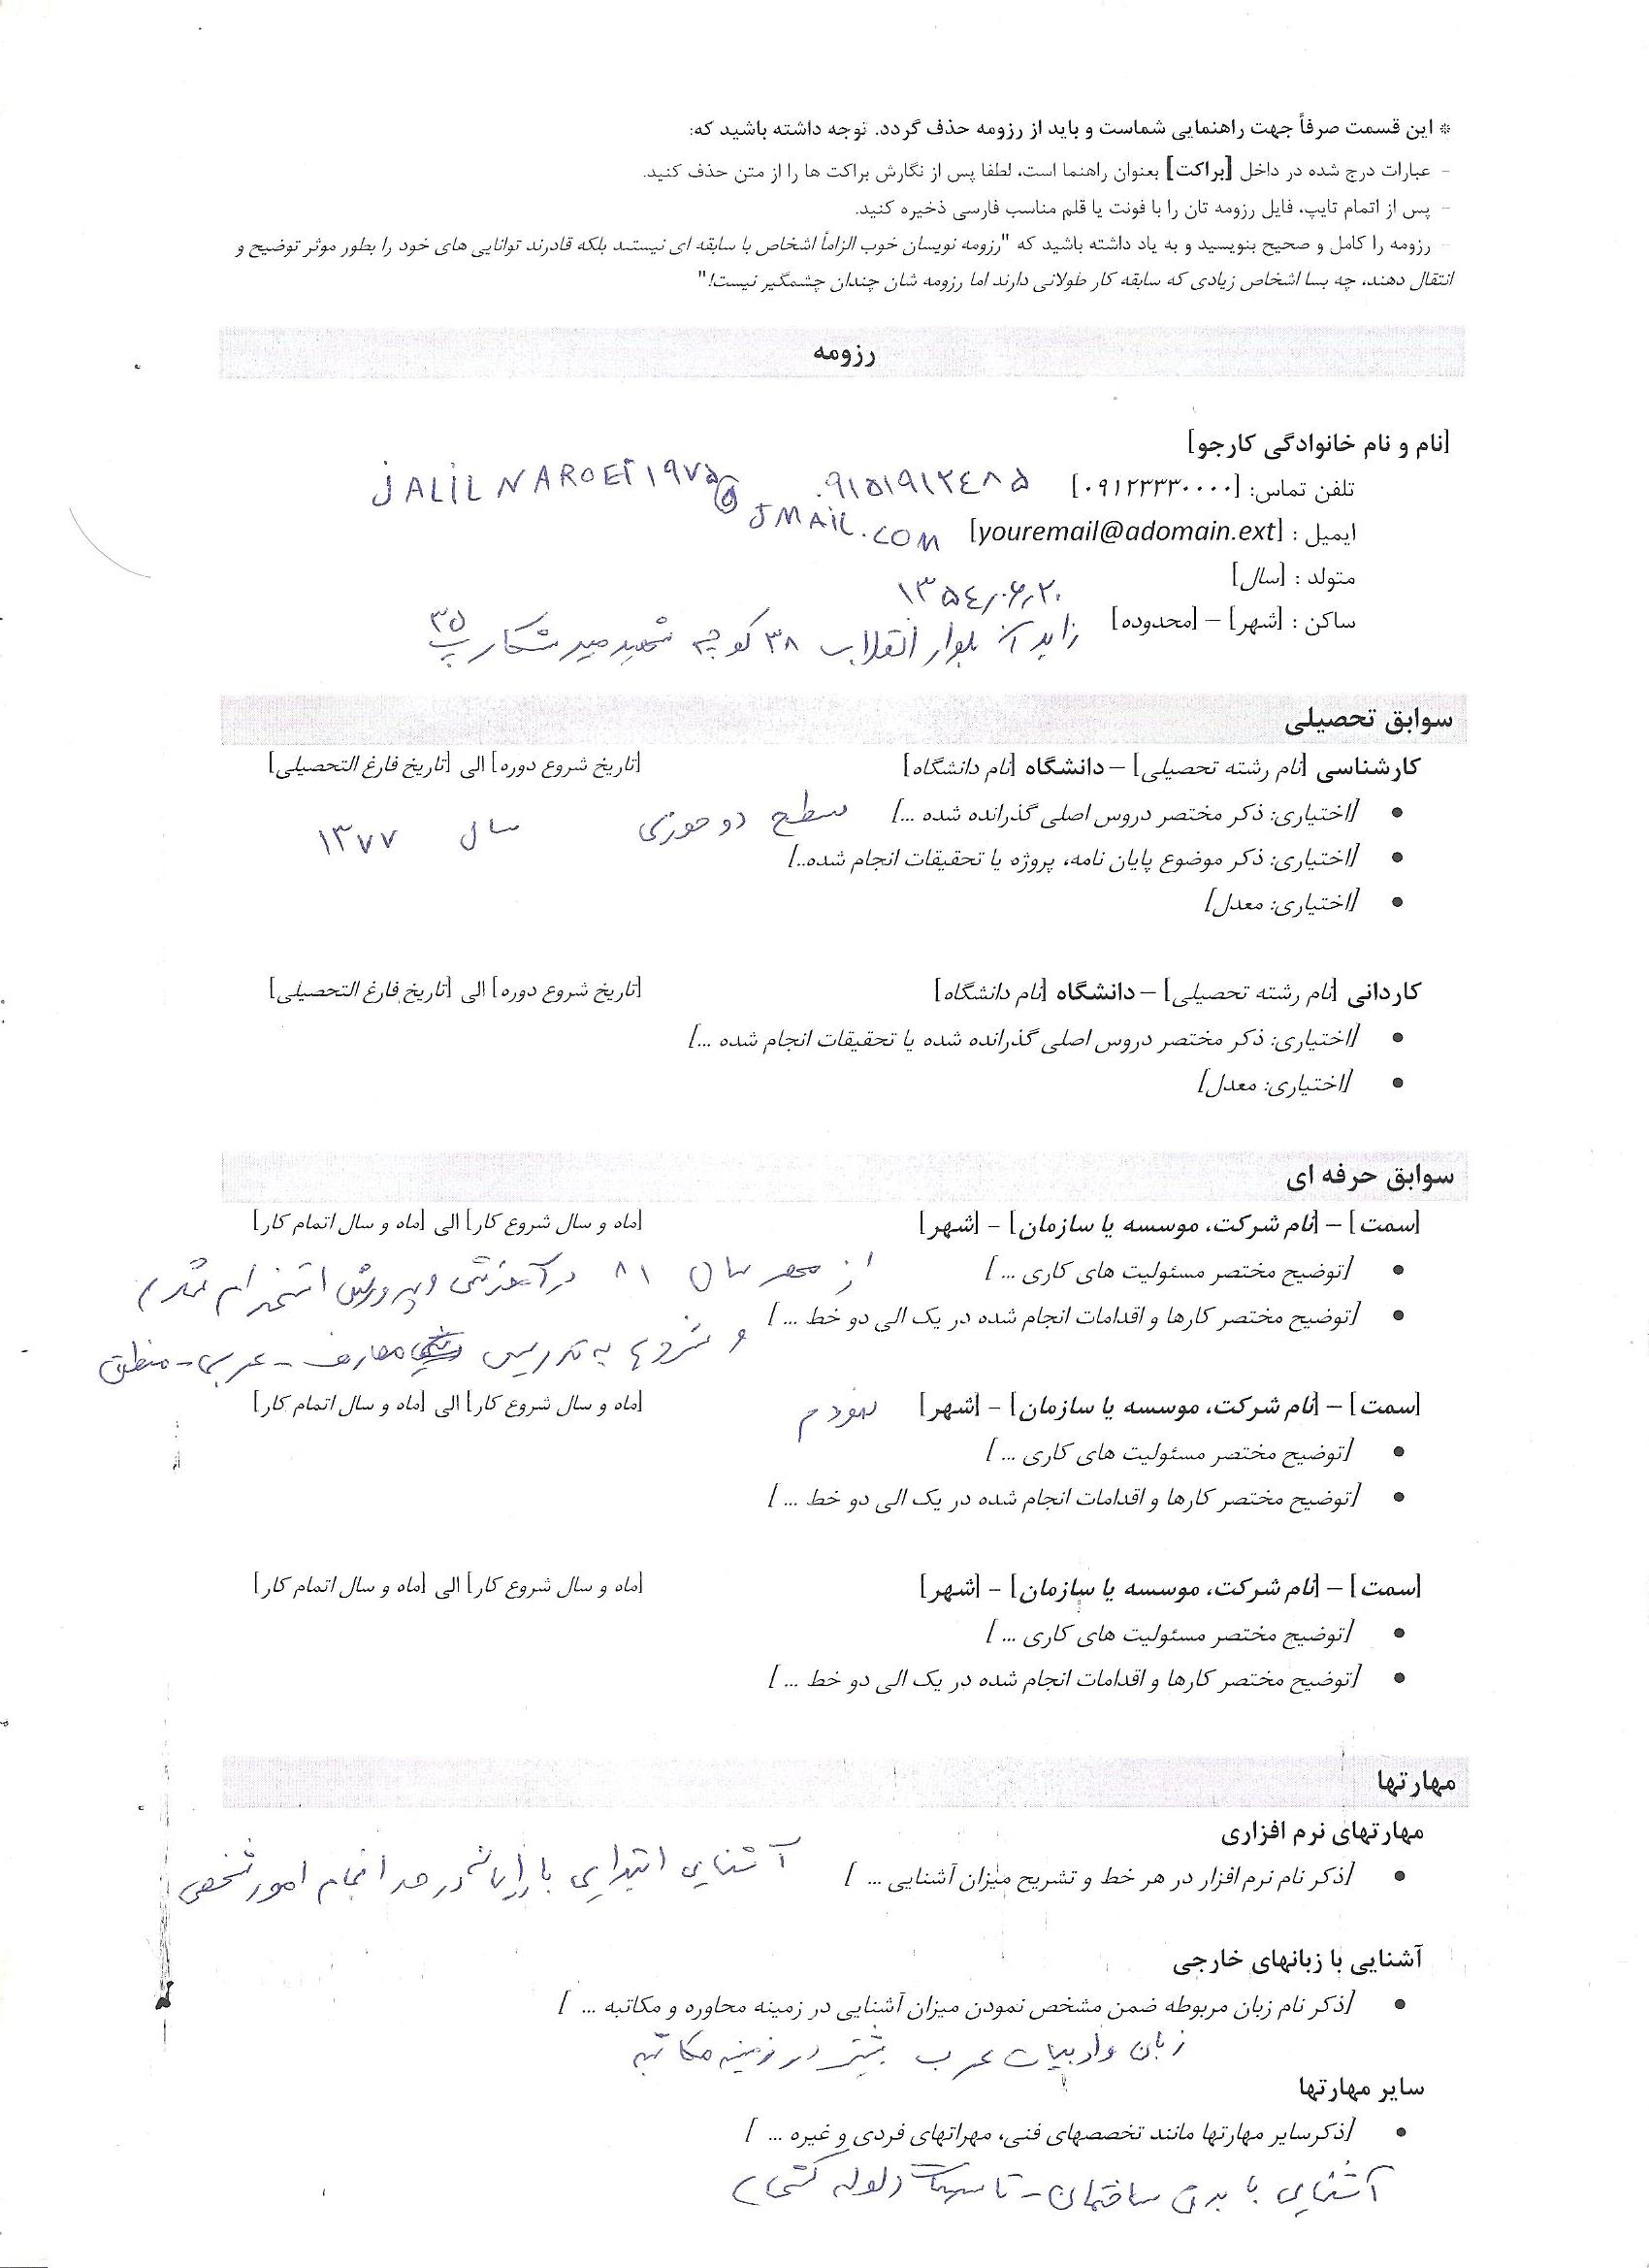 * این قسمت صرفاً جهت راهنمایی شماست و باید از رزومه حذف گردد. توجه داشته باشید که:
- عبارات درج شده در داخل [براکت] بعنوان راهنما است، لطفا پس از نگارش براکت ها را از متن حذف کنید.
- پس از اتمام تایپ، فایل رزومه تان را با فونت یا قلم مناسب فارسی ذخیره کنید.
- رزومه را کامل و صحیح بنویسید و به یاد داشته باشید که "رزومه نویسان خوب الزاماً اشخاص با سابقه ای نیستند بلکه قادرند توانایی های خود را بطور موثر توضیح و
انتقال دهند، چه بسا اشخاص زیادی که سابقه کار طولانی دارند اما رزومه شان چندان چشمگیر نیست!"
رزومه
[نام و نام خانوادگی کارجو]
تلفن تماس: [۰۹۱۲۳۳۳۰۰۰۰] ۰۹۱۵۱۹۱۲۴۸۵
JALIL NAROEI ۱۹۷۵@
JMAIL.COM
ایمیل : [youremail@adomain.ext]
متولد : [سال]
۱۳۵۴/۰۶/۲۰
ساکن : [شهر] – [محدوده] زاهدان بلوار انقلاب ۳۸ کوچه شهید میرشکار پ ۳۵
سوابق تحصیلی
کارشناسی [نام رشته تحصیلی] – دانشگاه [نام دانشگاه] [تاریخ شروع دوره] الی [تاریخ فارغ التحصیلی]
• [اختیاری: ذکر مختصر دروس اصلی گذرانده شده ...] سطح دو حوزی سال ۱۳۷۷
• [اختیاری: ذکر موضوع پایان نامه، پروژه یا تحقیقات انجام شده..]
• [اختیاری: معدل]
کاردانی [نام رشته تحصیلی] – دانشگاه [نام دانشگاه] [تاریخ شروع دوره] الی [تاریخ فارغ التحصیلی]
• [اختیاری: ذکر مختصر دروس اصلی گذرانده شده یا تحقیقات انجام شده ...]
• [اختیاری: معدل]
سوابق حرفه ای
[سمت] – [نام شرکت، موسسه یا سازمان] – [شهر] [ماه و سال شروع کار] الی [ماه و سال اتمام کار]
• [توضیح مختصر مسئولیت های کاری ... ] از مهر سال ۸۱ در آموزش و پرورش استخدام شدم
• [توضیح مختصر کارها و اقدامات انجام شده در یک الی دو خط ... ]
و شروع به تدریس معارف - عربی - منطق
[سمت] – [نام شرکت، موسسه یا سازمان] – [شهر] نمودم [ماه و سال شروع کار] الی [ماه و سال اتمام کار]
• [توضیح مختصر مسئولیت های کاری ... ]
• [توضیح مختصر کارها و اقدامات انجام شده در یک الی دو خط ... ]
[سمت] – [نام شرکت، موسسه یا سازمان] – [شهر] [ماه و سال شروع کار] الی [ماه و سال اتمام کار]
• [توضیح مختصر مسئولیت های کاری ... ]
• [توضیح مختصر کارها و اقدامات انجام شده در یک الی دو خط ... ]
مهارتها
مهارتهای نرم افزاری
• [ذکر نام نرم افزار در هر خط و تشریح میزان آشنایی ... ] آشنایی ابتدایی با رایانه در حد انجام امور شخصی
آشنایی با زبانهای خارجی
• [ذکر نام زبان مربوطه ضمن مشخص نمودن میزان آشنایی در زمینه محاوره و مکاتبه ... ]
زبان و ادبیات عرب بیشتر در زمینه مکاتبه
سایر مهارتها
• [ذکرسایر مهارتها مانند تخصصهای فنی، مهراتهای فردی و غیره ... ]
آشنایی با برق ساختمان - تاسیسات (لوله کشی)